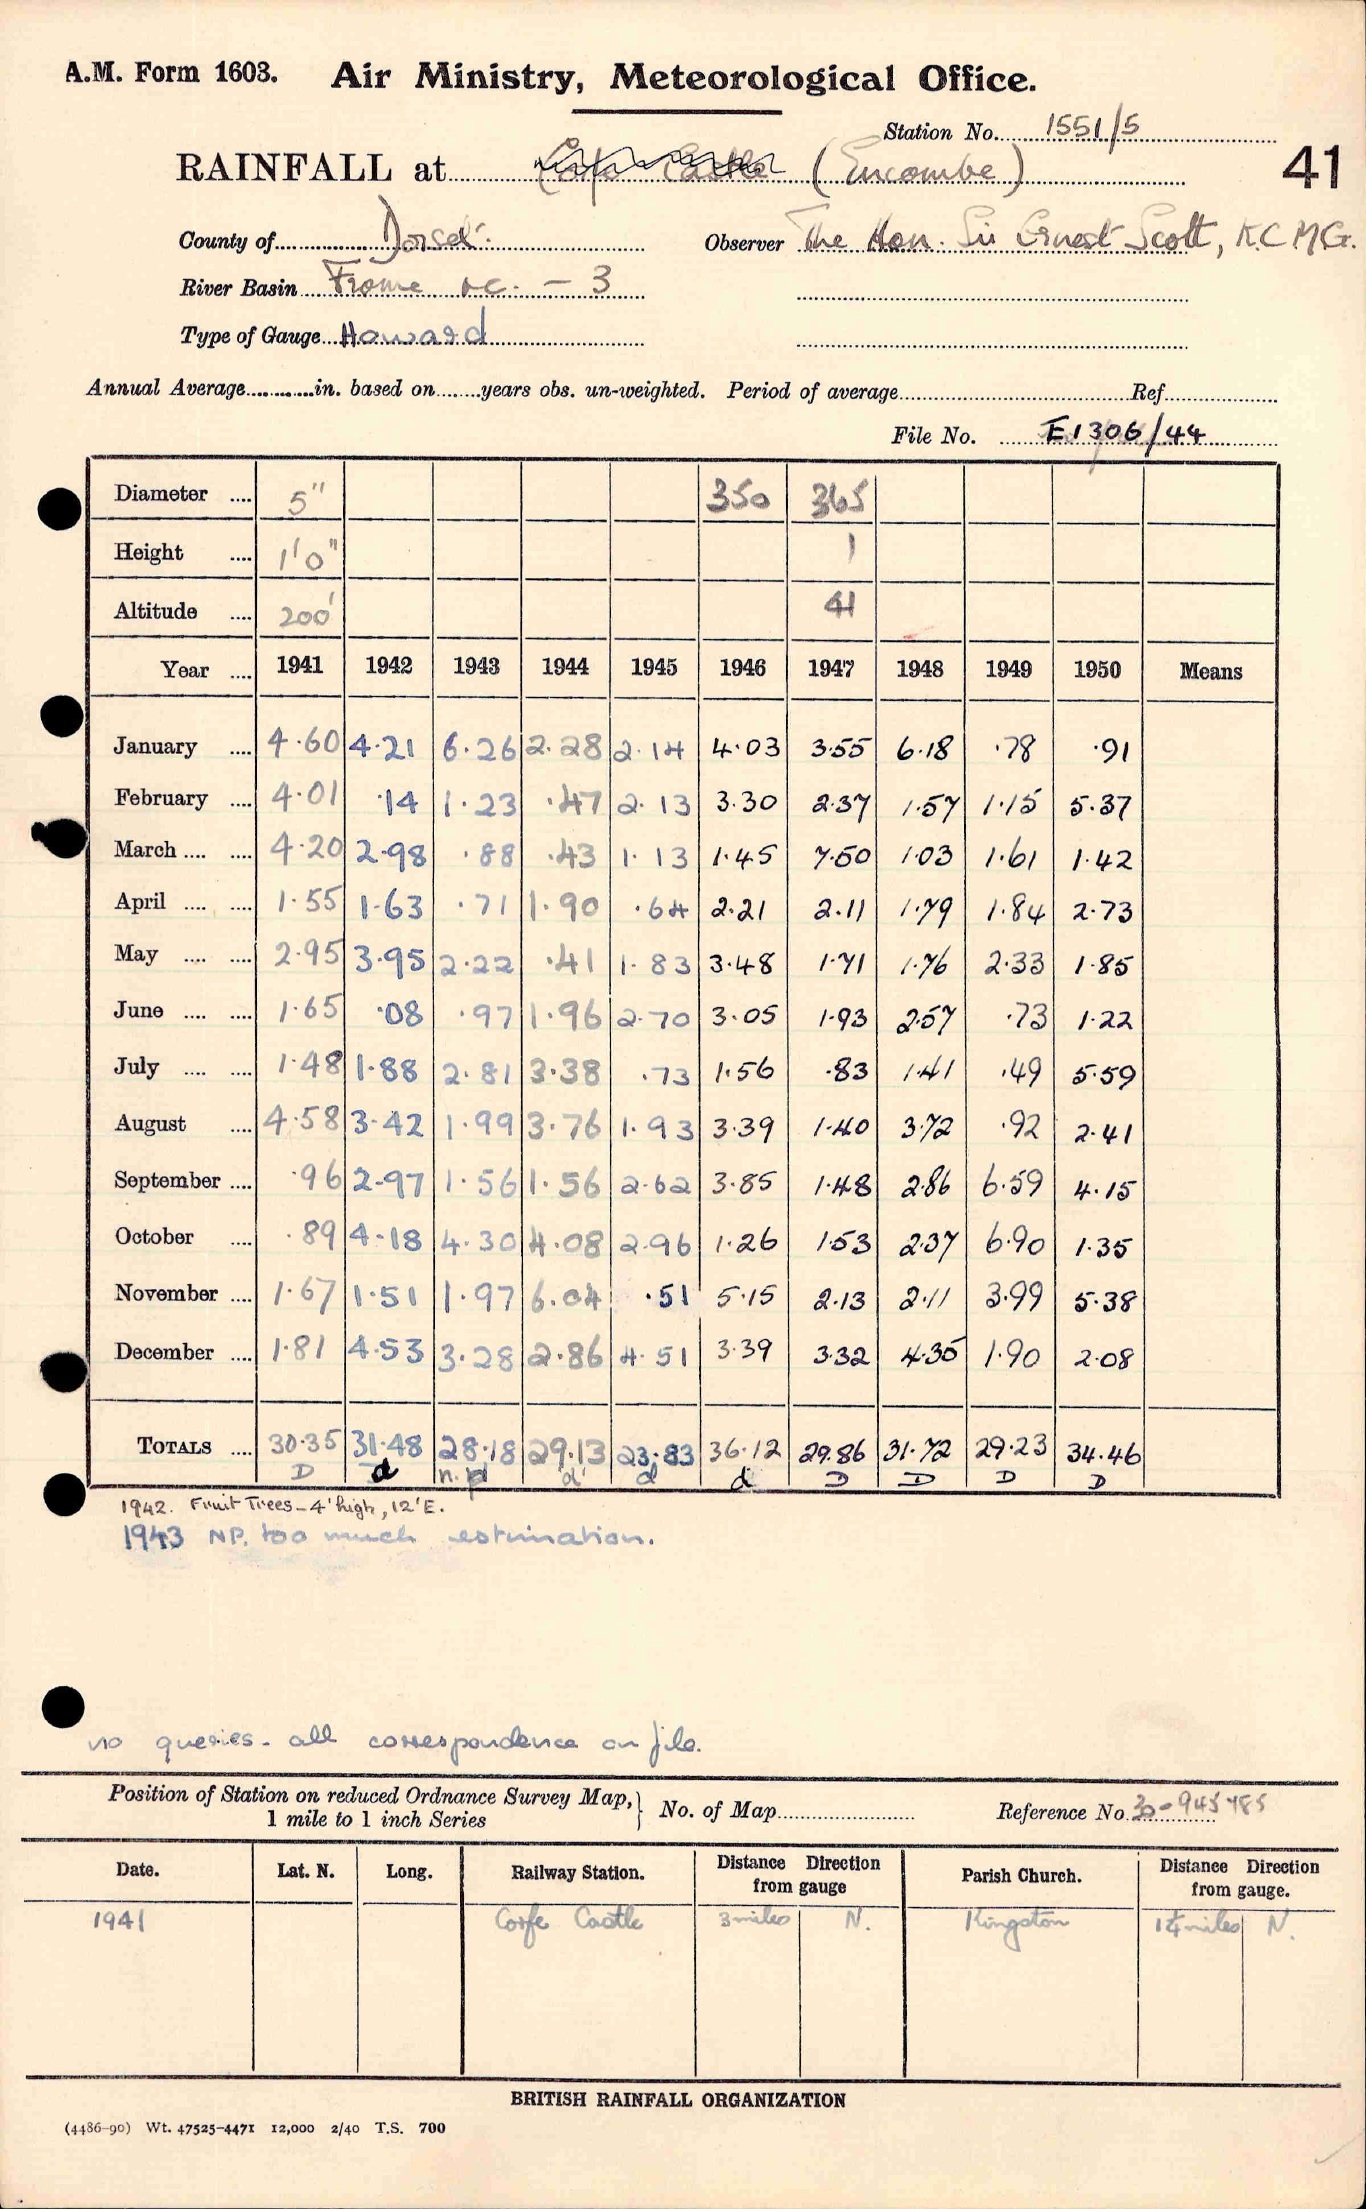 A.M. Form 1603. Air Ministry, Meteorological Office.
Station No. 1551/5
RAINFALL at Corfe Castle (Encombe) 41
County of Dorset. Observer The Hon. Sir Ernest Scott, K.C.M.G.
River Basin Frome &c. - 3
Type of Gauge Howard
Annual Average in. based on years obs. un-weighted. Period of average Ref
File No. E1306/44
Diameter 5" 350 365
Height 1'0" 1
Altitude 200' 41
Year 1941 1942 1943 1944 1945 1946 1947 1948 1949 1950 Means
January 4.60 4.21 6.26 2.28 2.14 4.03 3.55 6.18 .78 .91
February 4.01 .14 1.23 .47 2.13 3.30 2.37 1.57 1.15 5.37
March 4.20 2.98 .88 .43 1.13 1.45 7.50 1.03 1.61 1.42
April 1.55 1.63 .71 1.90 .64 2.21 2.11 1.79 1.84 2.73
May 2.95 3.95 2.22 .41 1.83 3.48 1.71 1.76 2.33 1.85
June 1.65 .08 .97 1.96 2.70 3.05 1.93 2.57 .73 1.22
July 1.48 1.88 2.81 3.38 .73 1.56 .83 1.41 .49 5.59
August 4.58 3.42 1.99 3.76 1.93 3.39 1.40 3.72 .92 2.41
September .96 2.97 1.56 1.56 2.62 3.85 1.48 2.86 6.59 4.15
October .89 4.18 4.30 4.08 2.96 1.26 1.53 2.37 6.90 1.35
November 1.67 1.51 1.97 6.04 .51 5.15 2.13 2.11 3.99 5.38
December 1.81 4.53 3.28 2.86 4.51 3.39 3.32 4.35 1.90 2.08
TOTALS 30.35 31.48 28.18 29.13 23.83 36.12 29.86 31.72 29.23 34.46
D d n.p d d d D D D D
1942. Fruit Trees - 4' high, 12' E.
1943 NP. too much estimation.
no queries - all correspondence on file.
Position of Station on reduced Ordnance Survey Map, 1 mile to 1 inch Series } No. of Map Reference No. 30-945785
Date. Lat. N. Long. Railway Station. Distance Direction from gauge Parish Church. Distance Direction from gauge.
1941 Corfe Castle 3 miles N. Kingston 1¼ miles N.
BRITISH RAINFALL ORGANIZATION
(4486-90) Wt. 47525-4471 12,000 2/40 T.S. 700